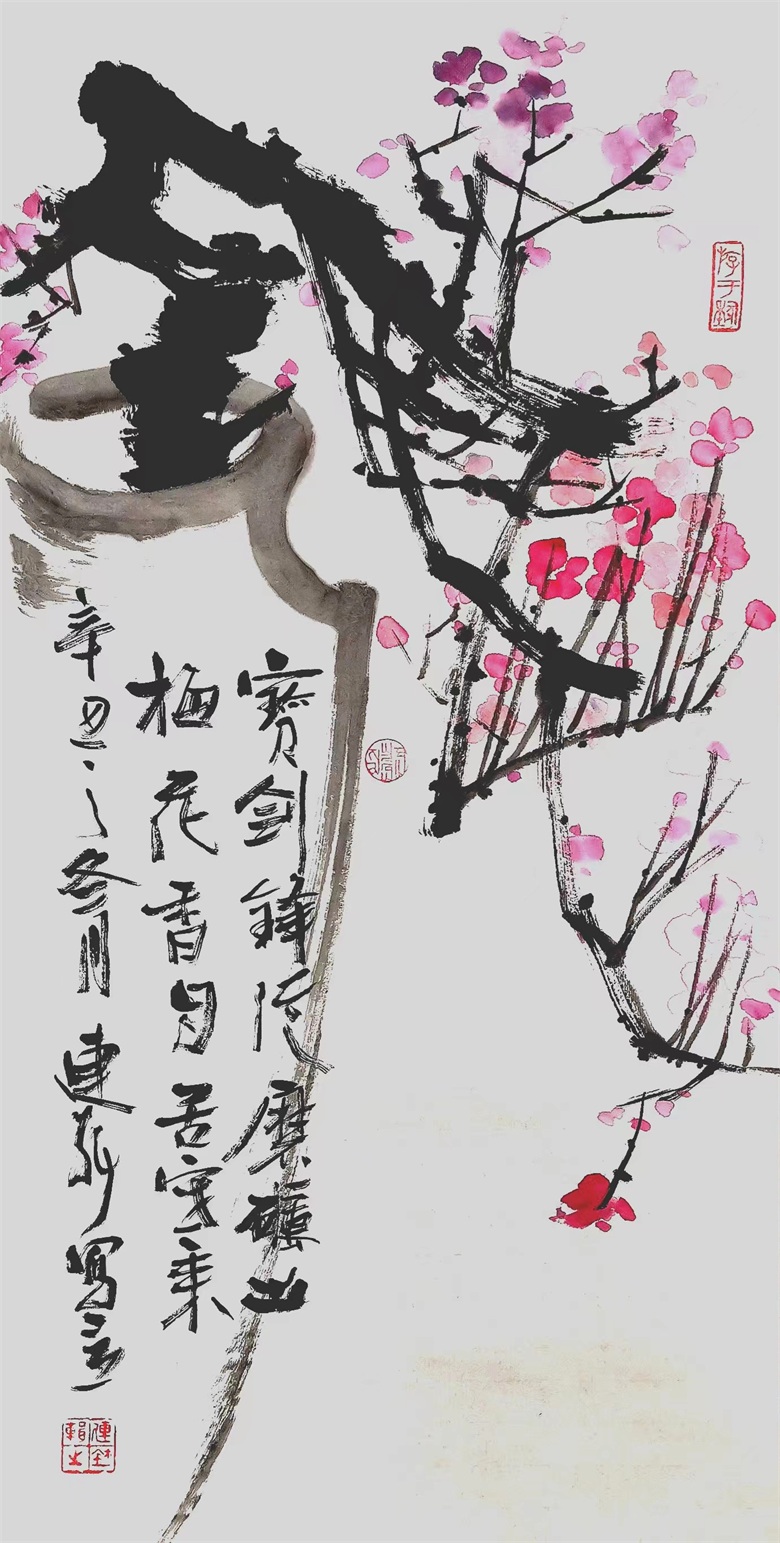 寶劍鋒從磨礪出
梅花香自苦寒来
辛丑之冬月連
寫意